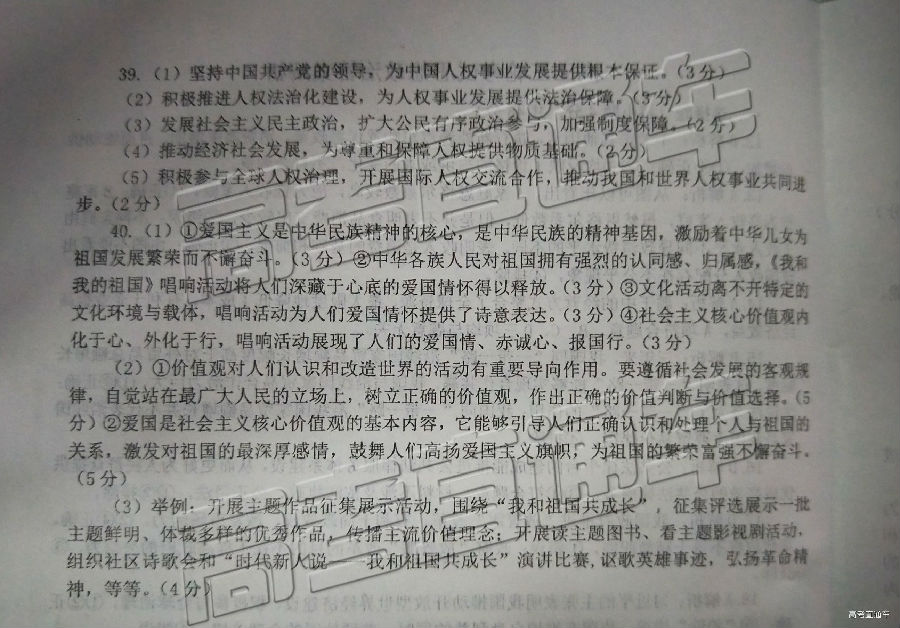 39.（1）坚持中国共产党的领导，为中国人权事业发展提供根本保证。（3分）
（2）积极推进人权法治化建设，为人权事业发展提供法治保障。（3分）
（3）发展社会主义民主政治，扩大公民有序政治参与，加强制度保障。（2分）
（4）推动经济社会发展，为尊重和保障人权提供物质基础。（2分）
（5）积极参与全球人权治理，开展国际人权交流合作，推动我国和世界人权事业共同进
步。（2分）
40.（1）①爱国主义是中华民族精神的核心，是中华民族的精神基因，激励着中华儿女为
祖国发展繁荣而不懈奋斗。（3分）②中华各族人民对祖国拥有强烈的认同感、归属感，《我和
我的祖国》唱响活动将人们深藏于心底的爱国情怀得以释放。（3分）③文化活动离不开特定的
文化环境与载体，唱响活动为人们爱国情怀提供了诗意表达。（3分）④社会主义核心价值观内
化于心、外化于行，唱响活动展现了人们的爱国情、赤诚心、报国行。（3分）
（2）①价值观对人们认识和改造世界的活动有重要导向作用。要遵循社会发展的客观规
律，自觉站在最广大人民的立场上，树立正确的价值观，作出正确的价值判断与价值选择。（5
分）②爱国是社会主义核心价值观的基本内容，它能够引导人们正确认识和处理个人与祖国的
关系，激发对祖国的最深厚感情，鼓舞人们高扬爱国主义旗帜，为祖国的繁荣富强不懈奋斗。
（5分）
（3）举例：开展主题作品征集展示活动，围绕“我和祖国共成长”，征集评选展示一批
主题鲜明、体裁多样的优秀作品，传播主流价值理念；开展读主题图书、看主题影视剧活动，
组织社区诗歌会和“时代新人说——我和祖国共成长”演讲比赛，讴歌英雄事迹，弘扬革命精
神，等等。（4分）
高考直通车
高考直通车
高考直通车